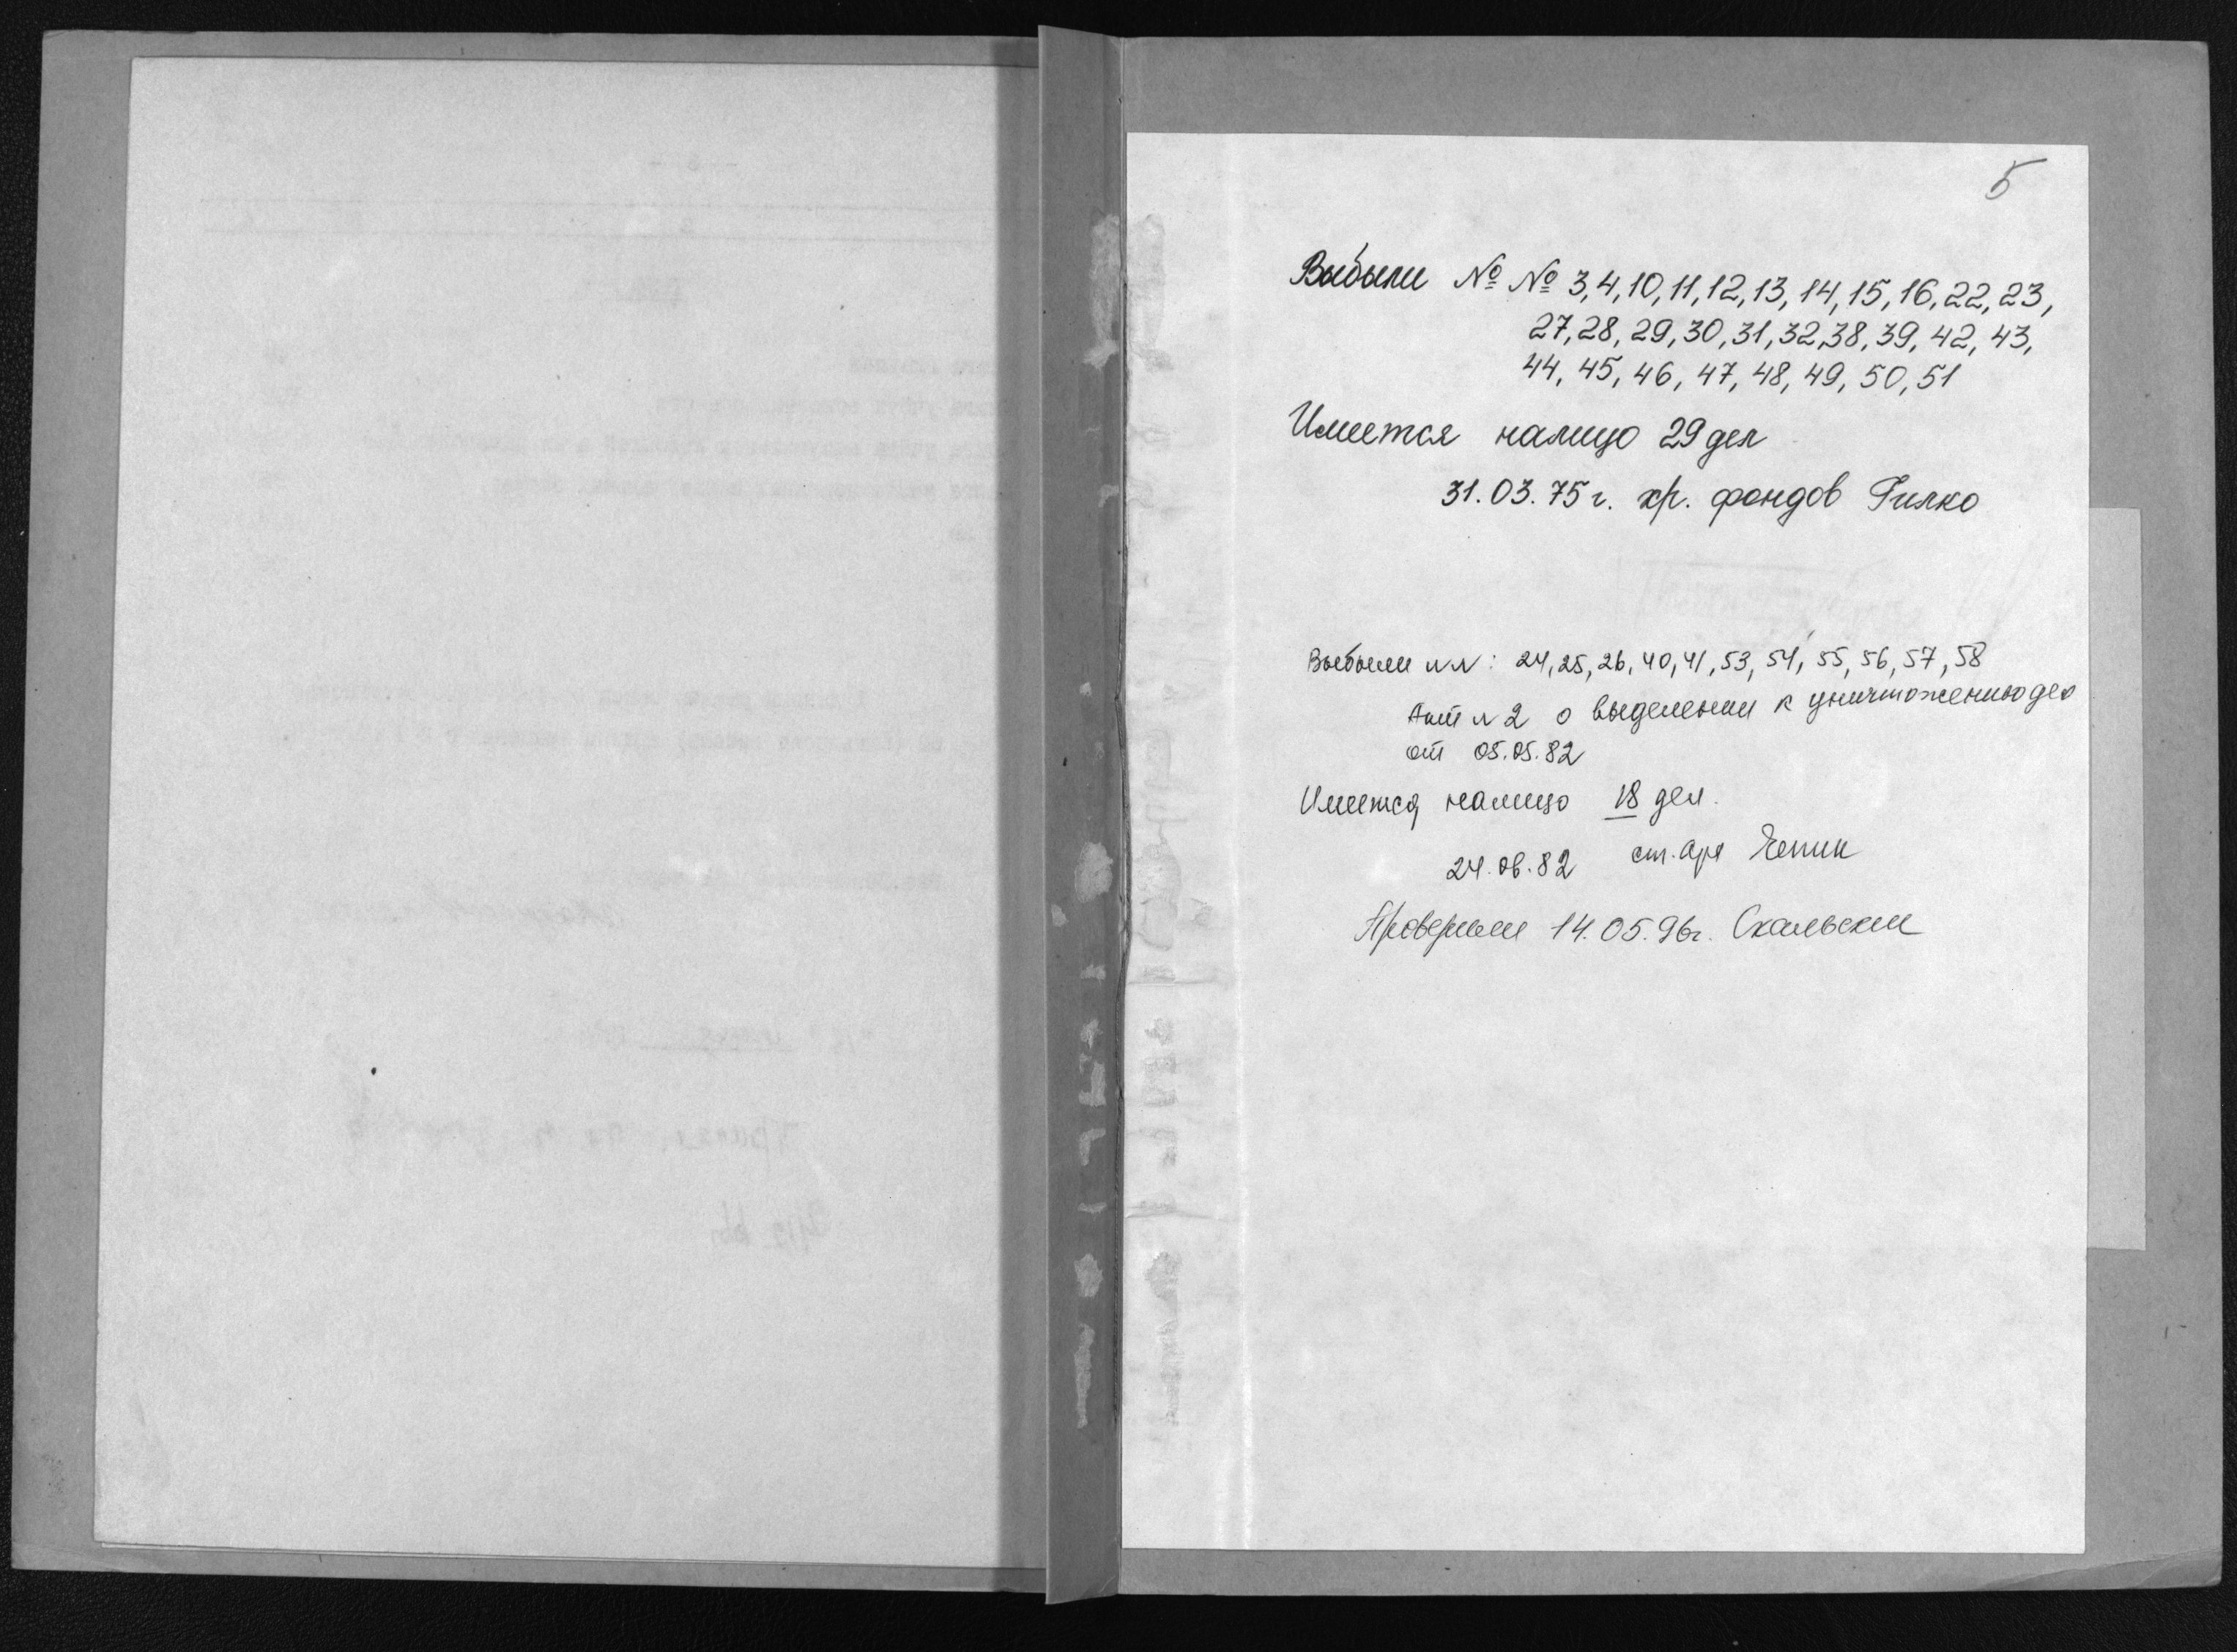 5
Выбыли №№ 3,4,10,11,12,13,14,15,16,22,23,
27,28,29,30,31,32,38,39,42,43,
44,45,46,47,48,49,50,51
Имеется налицо 29 дел
31.03.75 г. хр. фондов Гилко
Выбыли NN: 24,25,26,40,41,53,54,55,56,57,58
Акт N 2 о выделении к уничтожению дел
от 05.05.82
Имеется налицо 18 дел.
24.06.82 ст. арх
Проверили 14.05.96г. Скальский